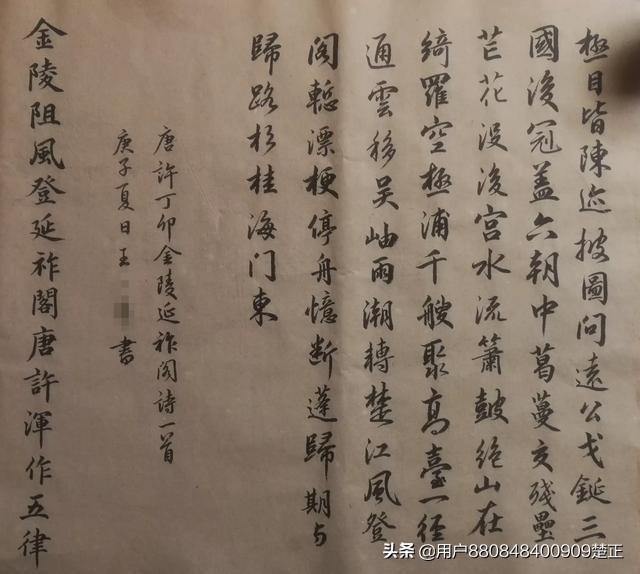 極目皆陳迹披圖问遠公戈鋋三
國後冠盖六朝中葛蔓交殘壘
芒花没後宫水流簫鼓絶山在
綺羅空極浦千艘聚高臺一径
通雲移吴岫雨潮轉楚江風登
阁慙漂梗停舟憶断蓬歸期与
歸路杉桂海门東
唐許丁卯金陵延祚阁詩一首
庚子夏日王 書
金陵阻風登延祚閣唐許渾作五律
头条 @用户880848400909楚正